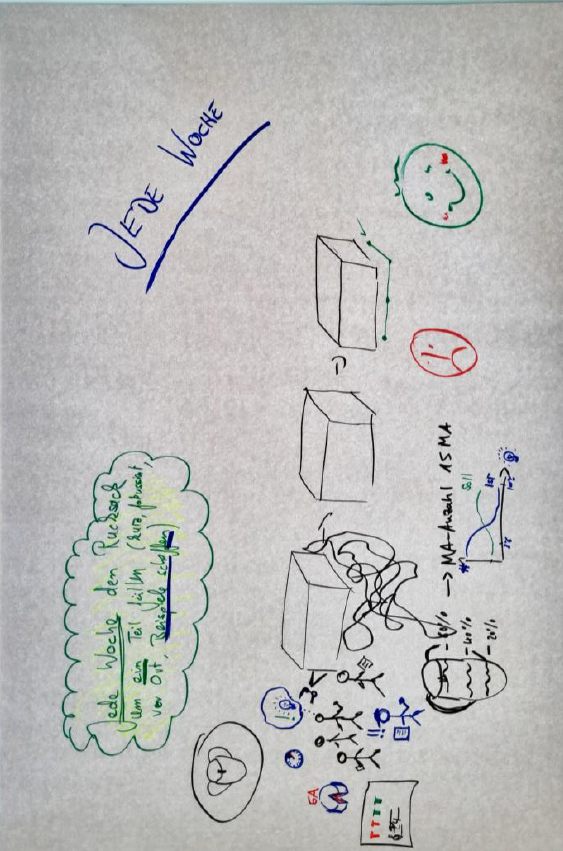 JEDE WOCHE
Jede Woche den Rucksack
um ein Teil füllen (kurz, fokussiert,
vor Ort, Beispiele schaffen)
→ MA-Anzahl 15 MA
Soll
Ist
100%
20%
GA